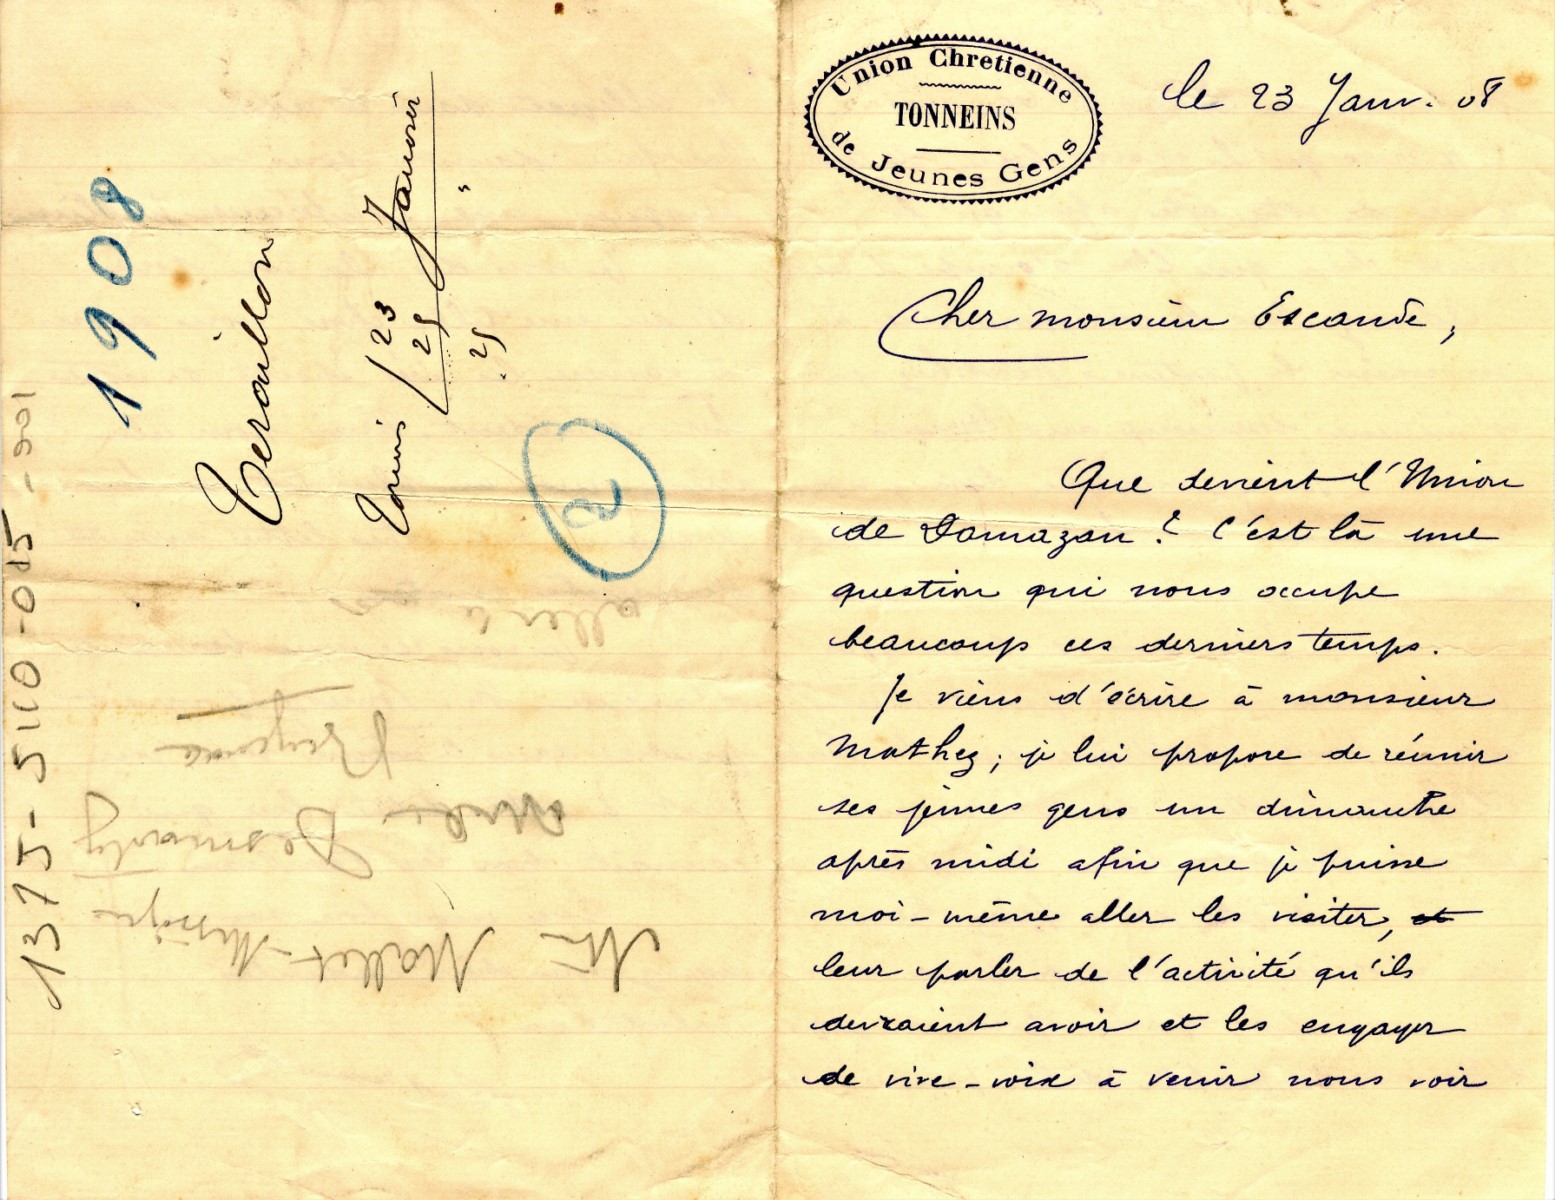 1908
Teraillon
23 Janvier
25 "
. 25
2
1375-5110-015-001
Mr Mallet-
Desmarty
Union Chretienne
TONNEINS
de Jeunes Gens
le 23 Janv. 08
Cher monsieur Escande,
Que devient l'Union
de Damazan ? C'est là une
question qui nous occupe
beaucoup ces derniers temps.
Je viens d'écrire à monsieur
Mathez ; je lui propose de réunir
ses jeunes gens un dimanche
après midi afin que je puisse
moi-même aller les visiter, et
leur parler de l'activité qu'ils
devraient avoir et les engager
de vive-voix à venir nous voir